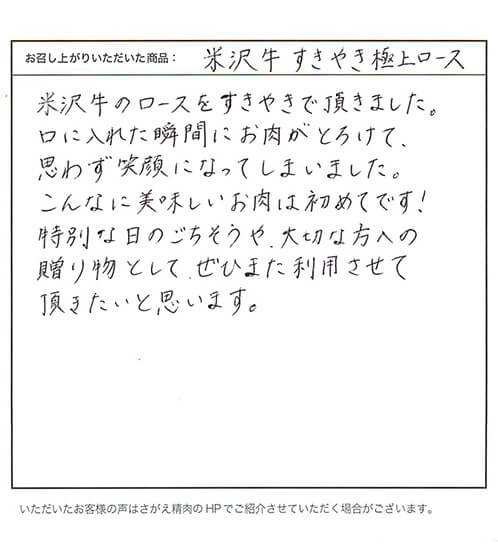 お召し上がりいただいた商品： 米沢牛 すきやき極上ロース
米沢牛のロースをすきやきで頂きました。
口に入れた瞬間にお肉がとろけて、
思わず笑顔になってしまいました。
こんなに美味しいお肉は初めてです！
特別な日のごちそうや、大切な方への
贈り物として、ぜひまた利用させて
頂きたいと思います。
いただいたお客様の声はさがえ精肉のHPでご紹介させていただく場合がございます。